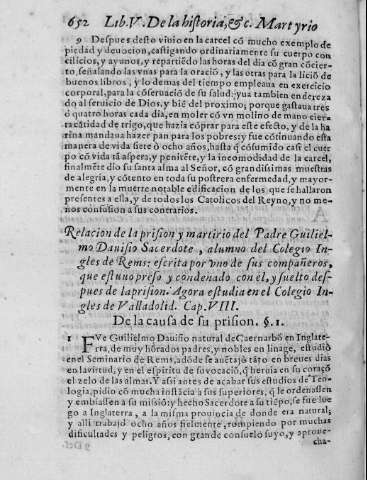 652 LIb.V. De la historia, &c. Martyrio
9 Despues desto vivio en la carcel cō mucho exemplo de
piedad y deuocion, castigando ordinariamente su cuerpo con
cilicios, y ayunos, y repartiēdo las horas del dia cō gran cōcier-
to, señalando las vnas para la oraciō, y las otras para la liciō de
buenos libros, y lo demas del tiempo empleaua en exercicio
corporal, para la cōseruaciō de su salud: yua tambien endereza
do al seruicio de Dios, y biē del proximo; porque gastaua tres
o quatro horas cada dia, en moler cō vn molino de mano cier-
ta cātidad de trigo, que hazia cōprar para este efecto, y de la ha
rina mandaua hazer pan para los pobres: y fue cōtinuando esta
manera de vida siete ò ocho años, hasta q̄ cōsumido casi el cuer
po cō vida tā aspera, y penitēte, y la incomodidad de la carcel,
finalmēte dio su santa alma al Señor, cō grandissimas muestras
de alegria, y cōtento en toda su postrera enfermedad, y mayor-
mente en la muerte notable edificacion de los que se hallaron
presentes a ella, y de todos los Catolicos del Reyno, y no me-
nos confusion a sus contrarios.
Relacion de la prision y martirio del Padre Guiliel-
mo Dauisio Sacerdote, alumno del Colegio In-
gles de Rems: escrita por vno de sus compañeros,
que estuuo preso y condenado con el, y suelto des-
pues de la prision. Agora estudia en el Colegio In-
gles de Valladolid. Cap. VIII.
De la causa de su prision. §. 1.
1 FVe Guilielmo Dauisio natural de Caernarbō en Inglate-
rra, de muy hōrados padres, y nobles en linage, estudiò
en el Seminario de Rems, adōde se auētajò tāto en breues dias
en la virtud, y en el espiritu de su vocaciō, q̄ heruia en su coraçō
el zelo de las almas. Y assi antes de acabar sus estudios de Teo-
logia, pidio cō mucha instācia a sus superiores, q̄ le ordenassen
y embiassen a su missiō: y hecho Sacerdote a su tiēpo, se fue lue
go a Inglaterra, a la misma prouincia de donde era natural;
y alli trabajò ocho años fielmente, rompiendo por muchas
dificultades y peligros, con grande consuelo suyo, y aproue-
cha-